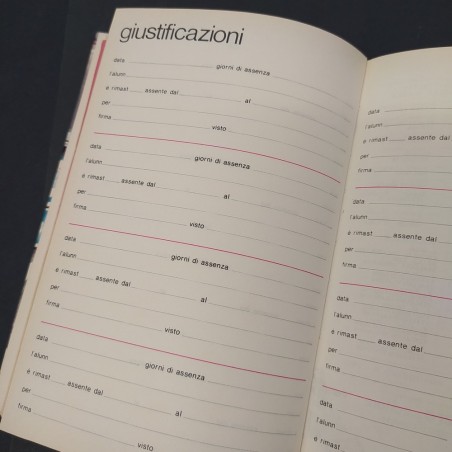 giustificazioni
data giorni di assenza
l'alunn
è rimast assente dal al
per
firma visto
data giorni di assenza
l'alunn
è rimast assente dal al
per
firma visto
data giorni di assenza
l'alunn
è rimast assente dal al
per
firma visto
data giorni di assenza
l'alunn
è rimast assente dal al
per
firma visto
data
l'alunn
è rimast assente dal
per
firma
data
l'alunn
è rimast assente dal
per
firma
data
l'alunn
è rimast assente dal
per
firma
data
l'alunn
è rimast assente dal